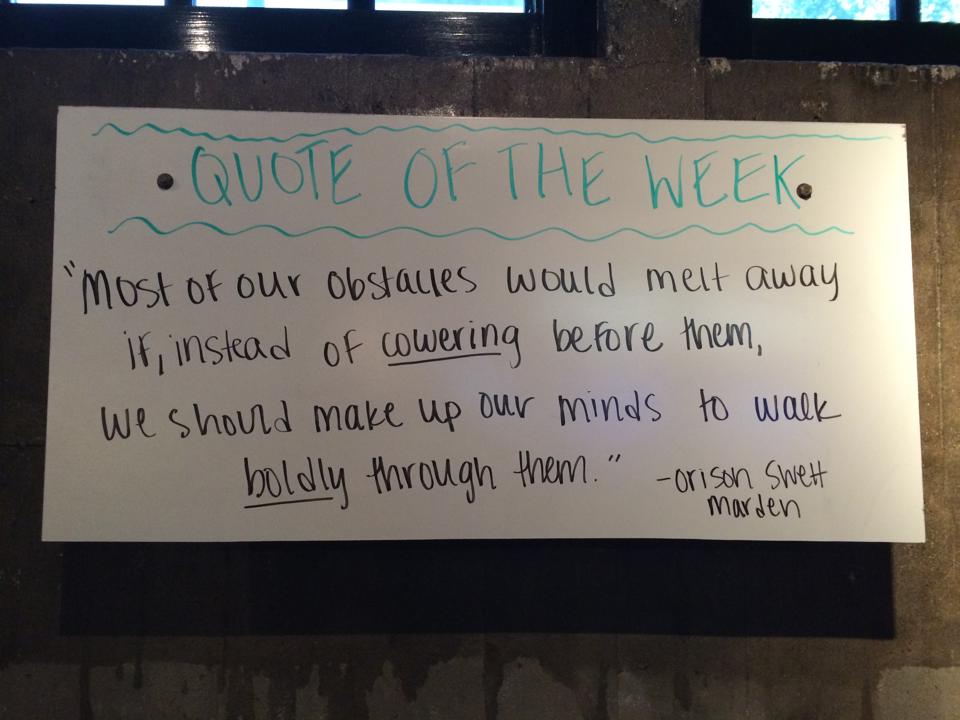 QUOTE OF THE WEEK
"Most of our obstacles would melt away
if, instead of cowering before them,
we should make up our minds to walk
boldly through them."
-orison Swett
marden